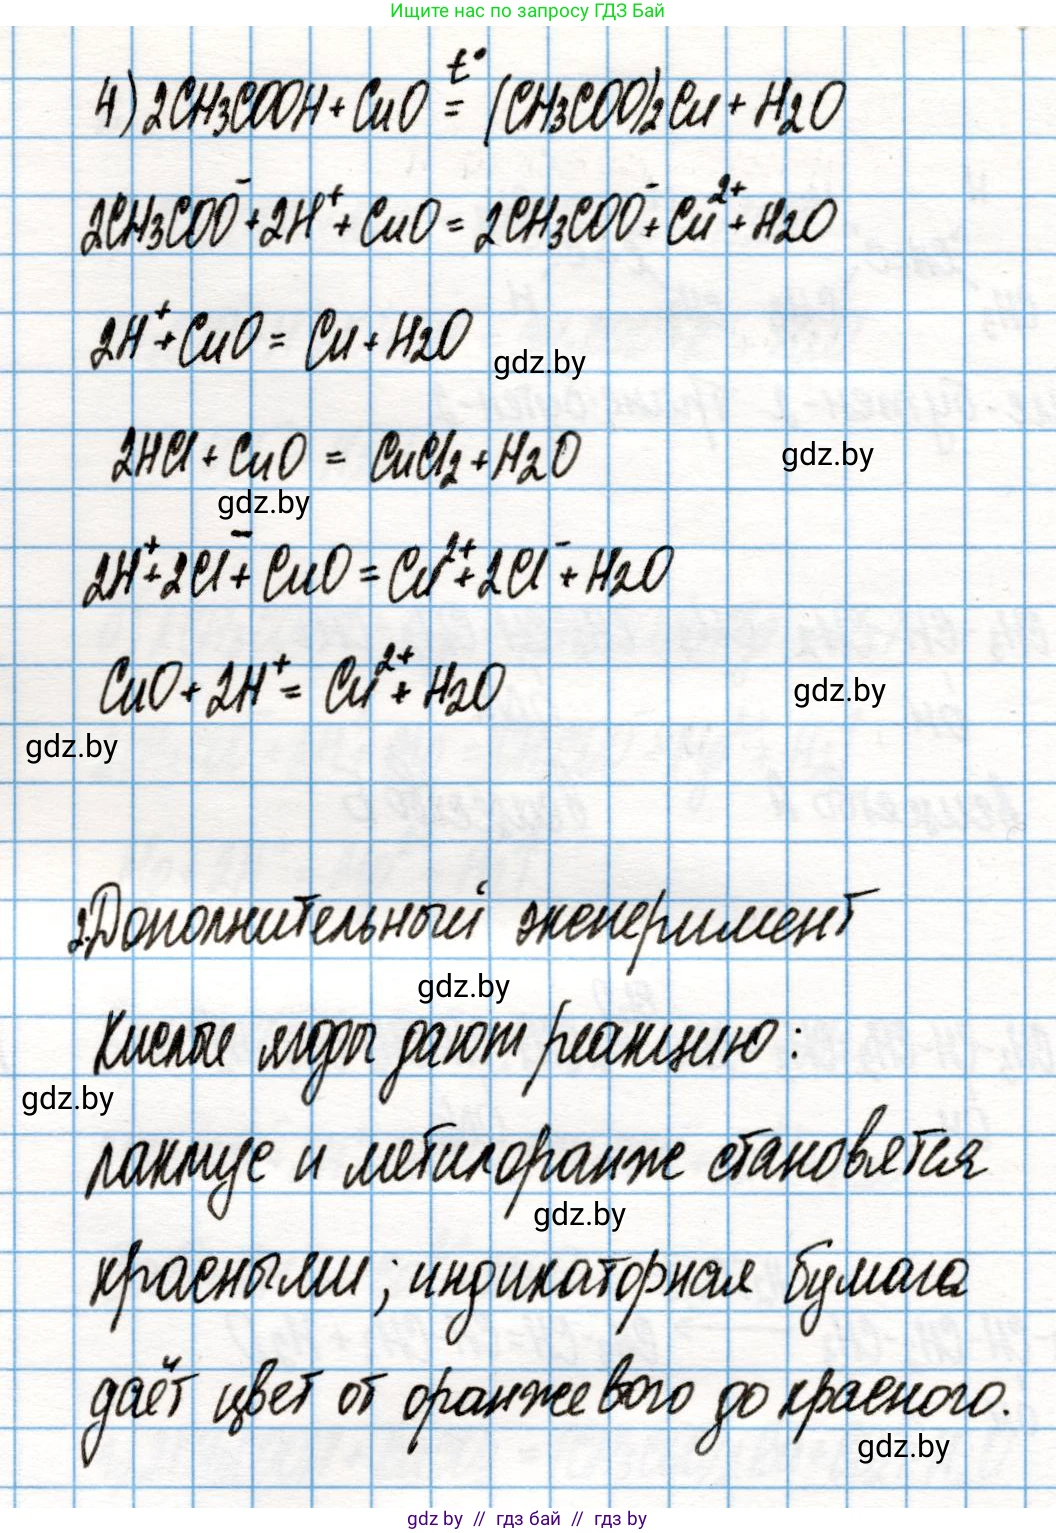 Ищите нас по запросу ГДЗ Бай
4) 2CH3COOH + CuO t° = (CH3COO)2Cu + H2O
2CH3COO⁻ + 2H⁺ + CuO = 2CH3COO⁻ + Cu²⁺ + H2O
2H⁺ + CuO = Cu + H2O
gdz.by
2HCl + CuO = CuCl2 + H2O
gdz.by
gdz.by
2H⁺ + 2Cl⁻ + CuO = Cu²⁺ + 2Cl⁻ + H2O
CuO + 2H⁺ = Cu²⁺ + H2O
gdz.by
gdz.by
2. Дополнительный эксперимент
gdz.by
Кислые ягоды дают реакцию:
gdz.by
лакмус и метилоранж становятся
gdz.by
красными; индикаторная бумага
даёт цвет от оранжевого до красного.
gdz.by
gdz.by // гдз бай // gdz.by